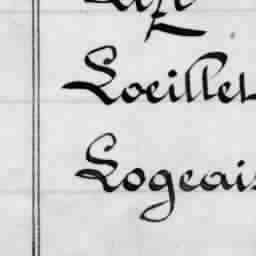 Loeillet
Logeais